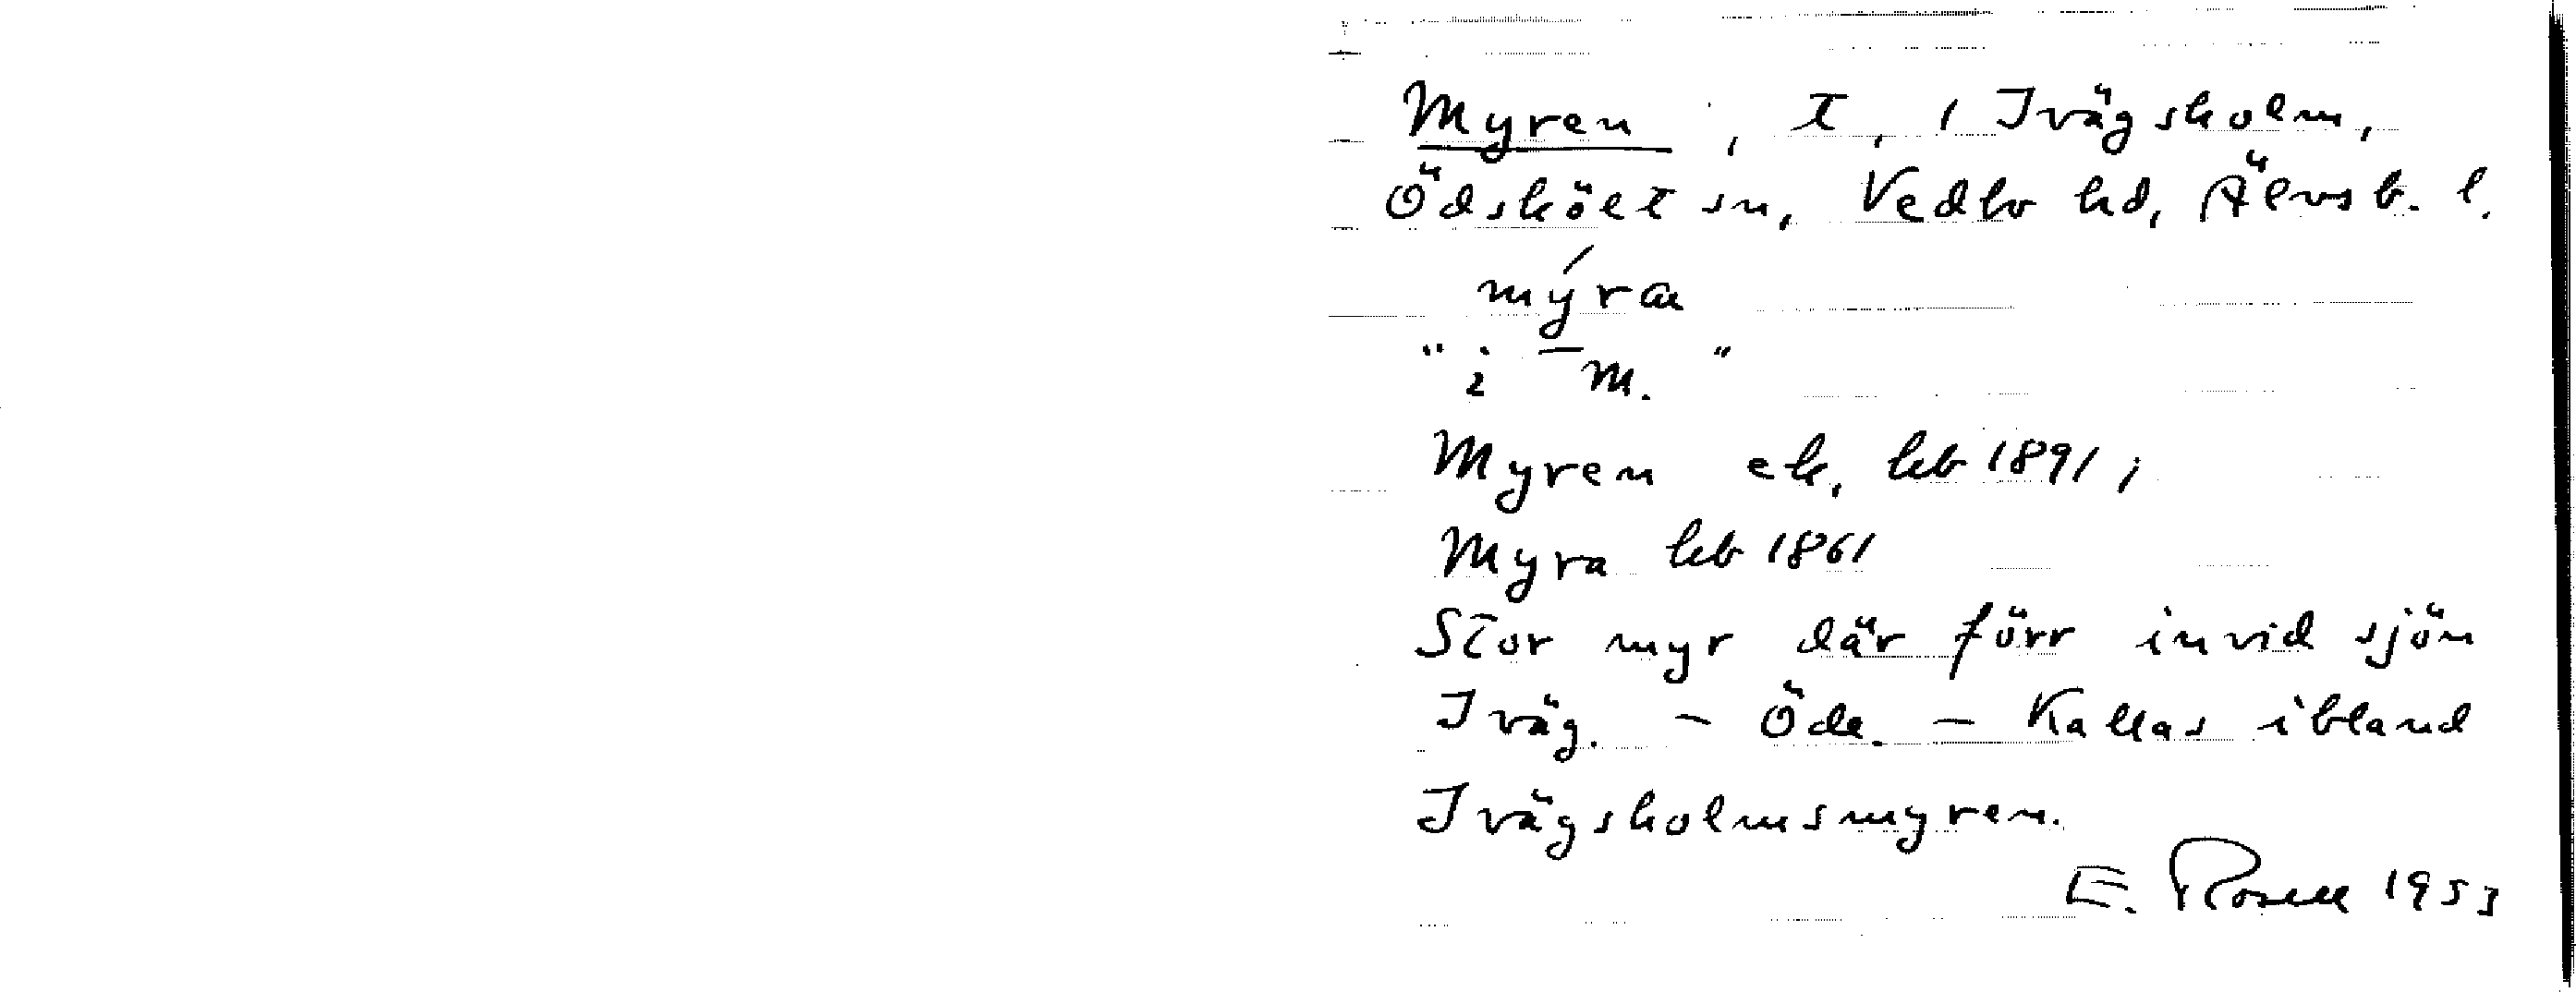 Myren, t, 1 Ivägsholm,
Ödskölt sn, Vedbo hd, Älvsb. l.
"i m."
Myren ek, kb 1891;
Myra kb 1861
Stor myr där förr invid sjön
Iväg. - Öde. - Kallas ibland
Ivägsholmsmyren.
E. Rosell 1953